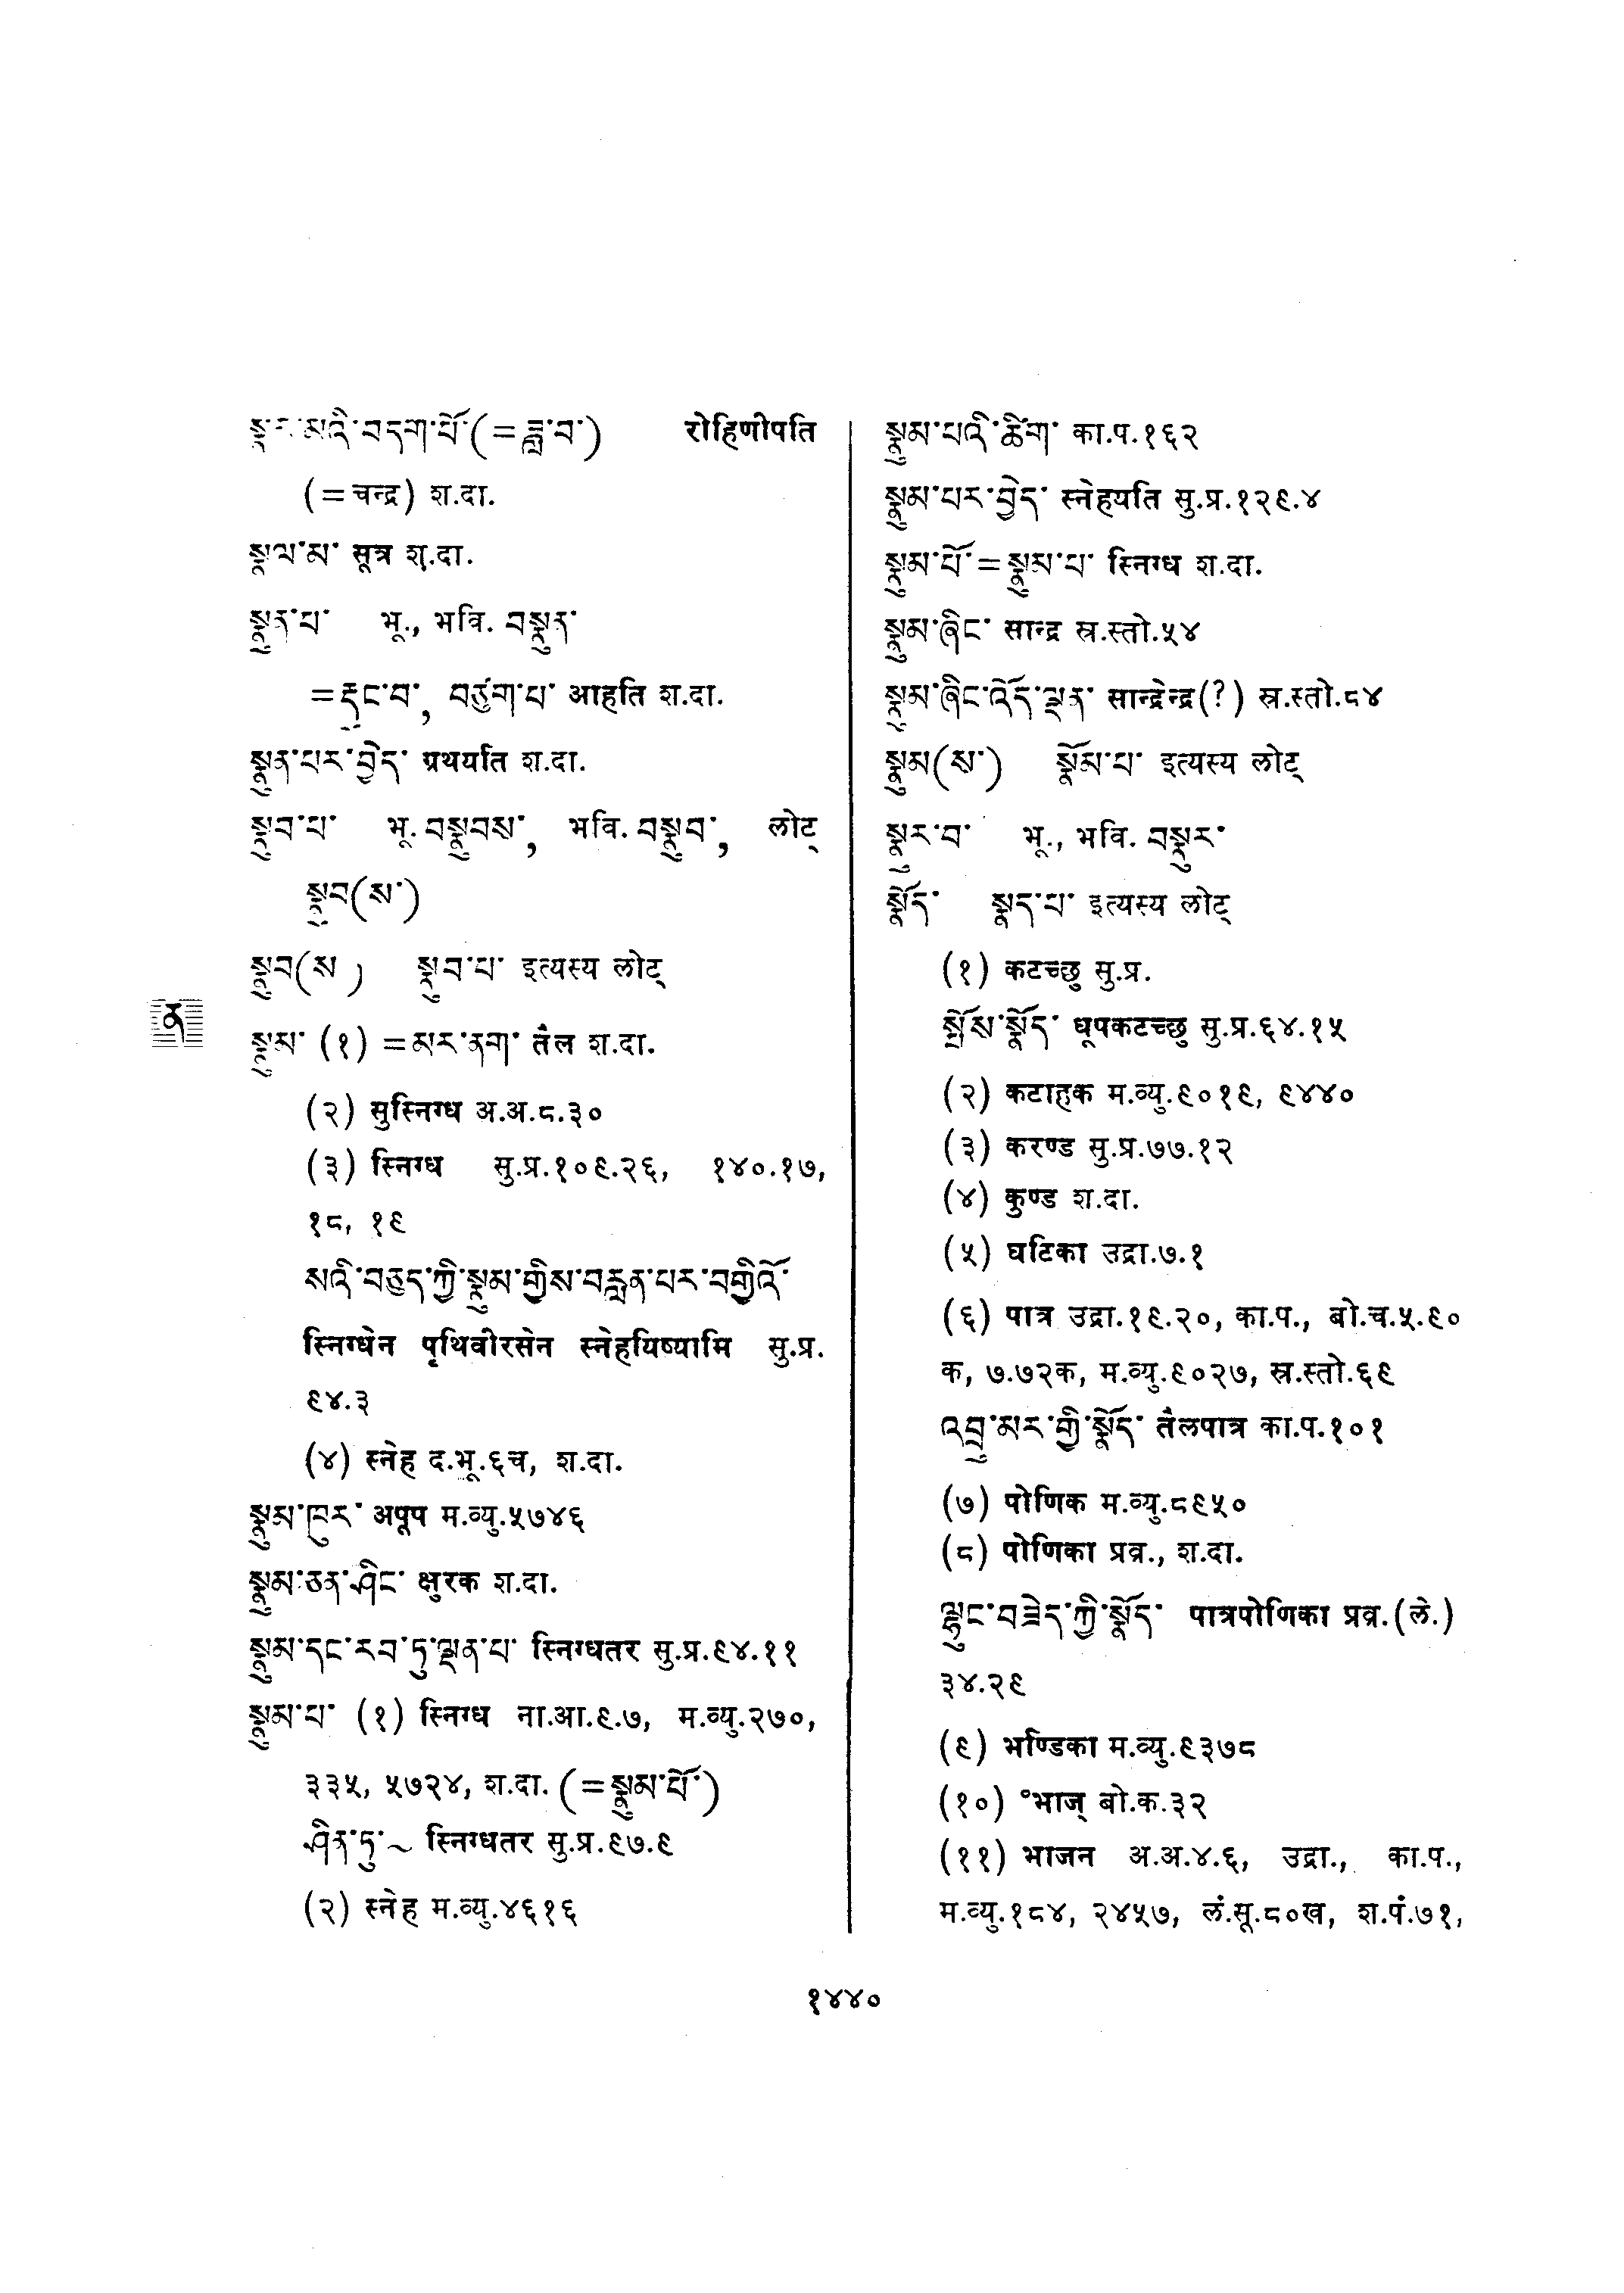 སྣར་མའི་བདག་པོ་(=ཟླ་བ་) रोहिणीपति
(=चन्द्र) श.दा.
སྣལ་མ་ सूत्र श.दा.
སྣུན་པ་ भू., भवि. བསྣུན་
=རྡུང་བ་, བཙུག་པ་ आहति श.दा.
སྣུན་པར་བྱེད་ ग्रथर्यति श.दा.
སྣུབ་པ་ भू. བསྣུབས་, भवि. བསྣུབ་, लोट्
སྣུབ(ས་)
སྣུབ(ས ) སྣུབ་པ་ इत्यस्य लोट्
སྣུམ་ (१) =མར་ནག་ तैल श.दा.
(२) सुस्निग्ध अ.अ.८.३०
(३) स्निग्ध सु.प्र.१०९.२६, १४०.१७,
१८, १९
སའི་བཅུད་ཀྱི་སྣུམ་གྱིས་བརླན་པར་བགྱིའོ་
स्निग्धेन पृथिवीरसेन स्नेहयिष्यामि सु.प्र.
९४.३
(४) स्नेह द.भू.६च, श.दा.
སྣུམ་ཁུར་ अपूप म.व्यु.५७४६
སྣུམ་ཅན་ཤིང་ क्षुरक श.दा.
སྣུམ་དང་རབ་ཏུ་ལྡན་པ་ स्निग्धतर सु.प्र.९४.११
སྣུམ་པ་ (१) स्निग्ध ना.आ.९.७, म.व्यु.२७०,
३३५, ५७२४, श.दा. (=སྣུམ་པོ་)
ཤིན་ཏུ་~ स्निग्धतर सु.प्र.९७.९
(२) स्नेह म.व्यु.४६१६
སྣུམ་པའི་ཚིག་ का.प.१६२
སྣུམ་པར་བྱེད་ स्नेहयति सु.प्र.१२९.४
སྣུམ་པོ་=སྣུམ་པ་ स्निग्ध श.दा.
སྣུམ་ཞིང་ सान्द्र स्र.स्तो.५४
སྣུམ་ཞིང་འོད་ལྡན་ सान्द्रेन्द्र(?) स्र.स्तो.८४
སྣུམ(ས་) སྣོམ་པ་ इत्यस्य लोट्
སྣུར་བ་ भू., भवि. བསྣུར་
སྣོད་ སྣད་པ་ इत्यस्य लोट्
(१) कटच्छु सु.प्र.
སྤོས་སྣོད་ धूपकटच्छु सु.प्र.६४.१५
(२) कटाहक म.व्यु.९०१९, ९४४०
(३) करण्ड सु.प्र.७७.१२
(४) कुण्ड श.दा.
(५) घटिका उद्रा.७.१
(६) पात्र उद्रा.१९.२०, का.प., बो.च.५.९०
क, ७.७२क, म.व्यु.९०२७, स्र.स्तो.६९
འབྲུ་མར་གྱི་སྣོད་ तैलपात्र का.प.१०१
(७) पोणिक म.व्यु.८९५०
(८) पोणिका प्रव्र., श.दा.
ལྷུང་བཟེད་ཀྱི་སྣོད་ पात्रपोणिका प्रव्र.(ले.)
३४.२९
(९) भण्डिका म.व्यु.९३७८
(१०) °भाज् बो.क.३२
(११) भाजन अ.अ.४.६, उद्रा., का.प.,
म.व्यु.१८४, २४५७, लं.सू.८०ख, श.पं.७१,
ན
१४४०